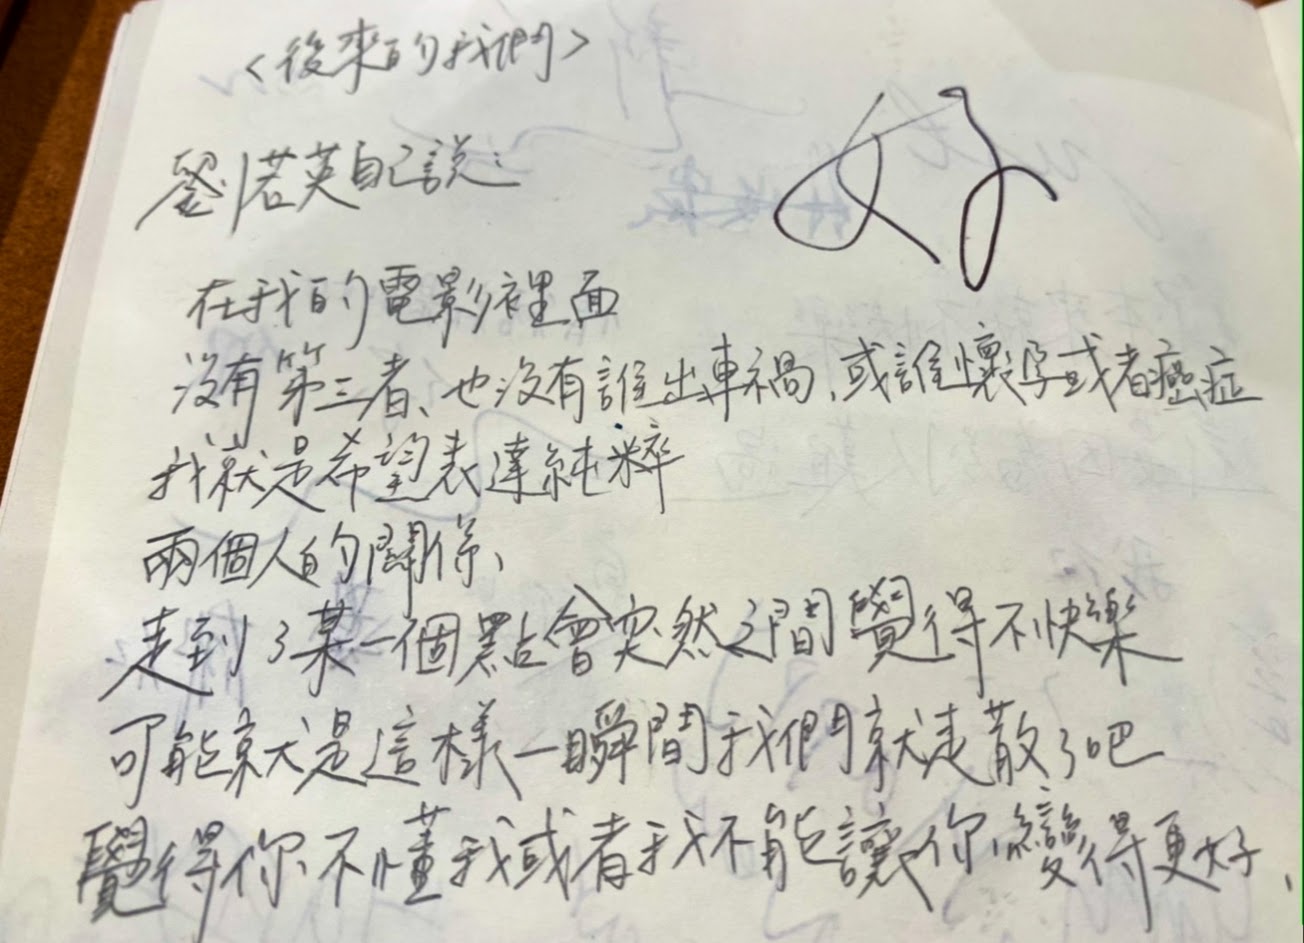 <後來的我們>
劉若英自己說：
好
在我的電影裡面
沒有第三者、也沒有誰出車禍、或誰懷孕或者癌症
我就是希望表達純粹
兩個人的關係、
走到了某一個點會突然之間覺得不快樂
可能就是這樣一瞬間我們就走散了吧
覺得你不懂我或者我不能讓你變得更好、